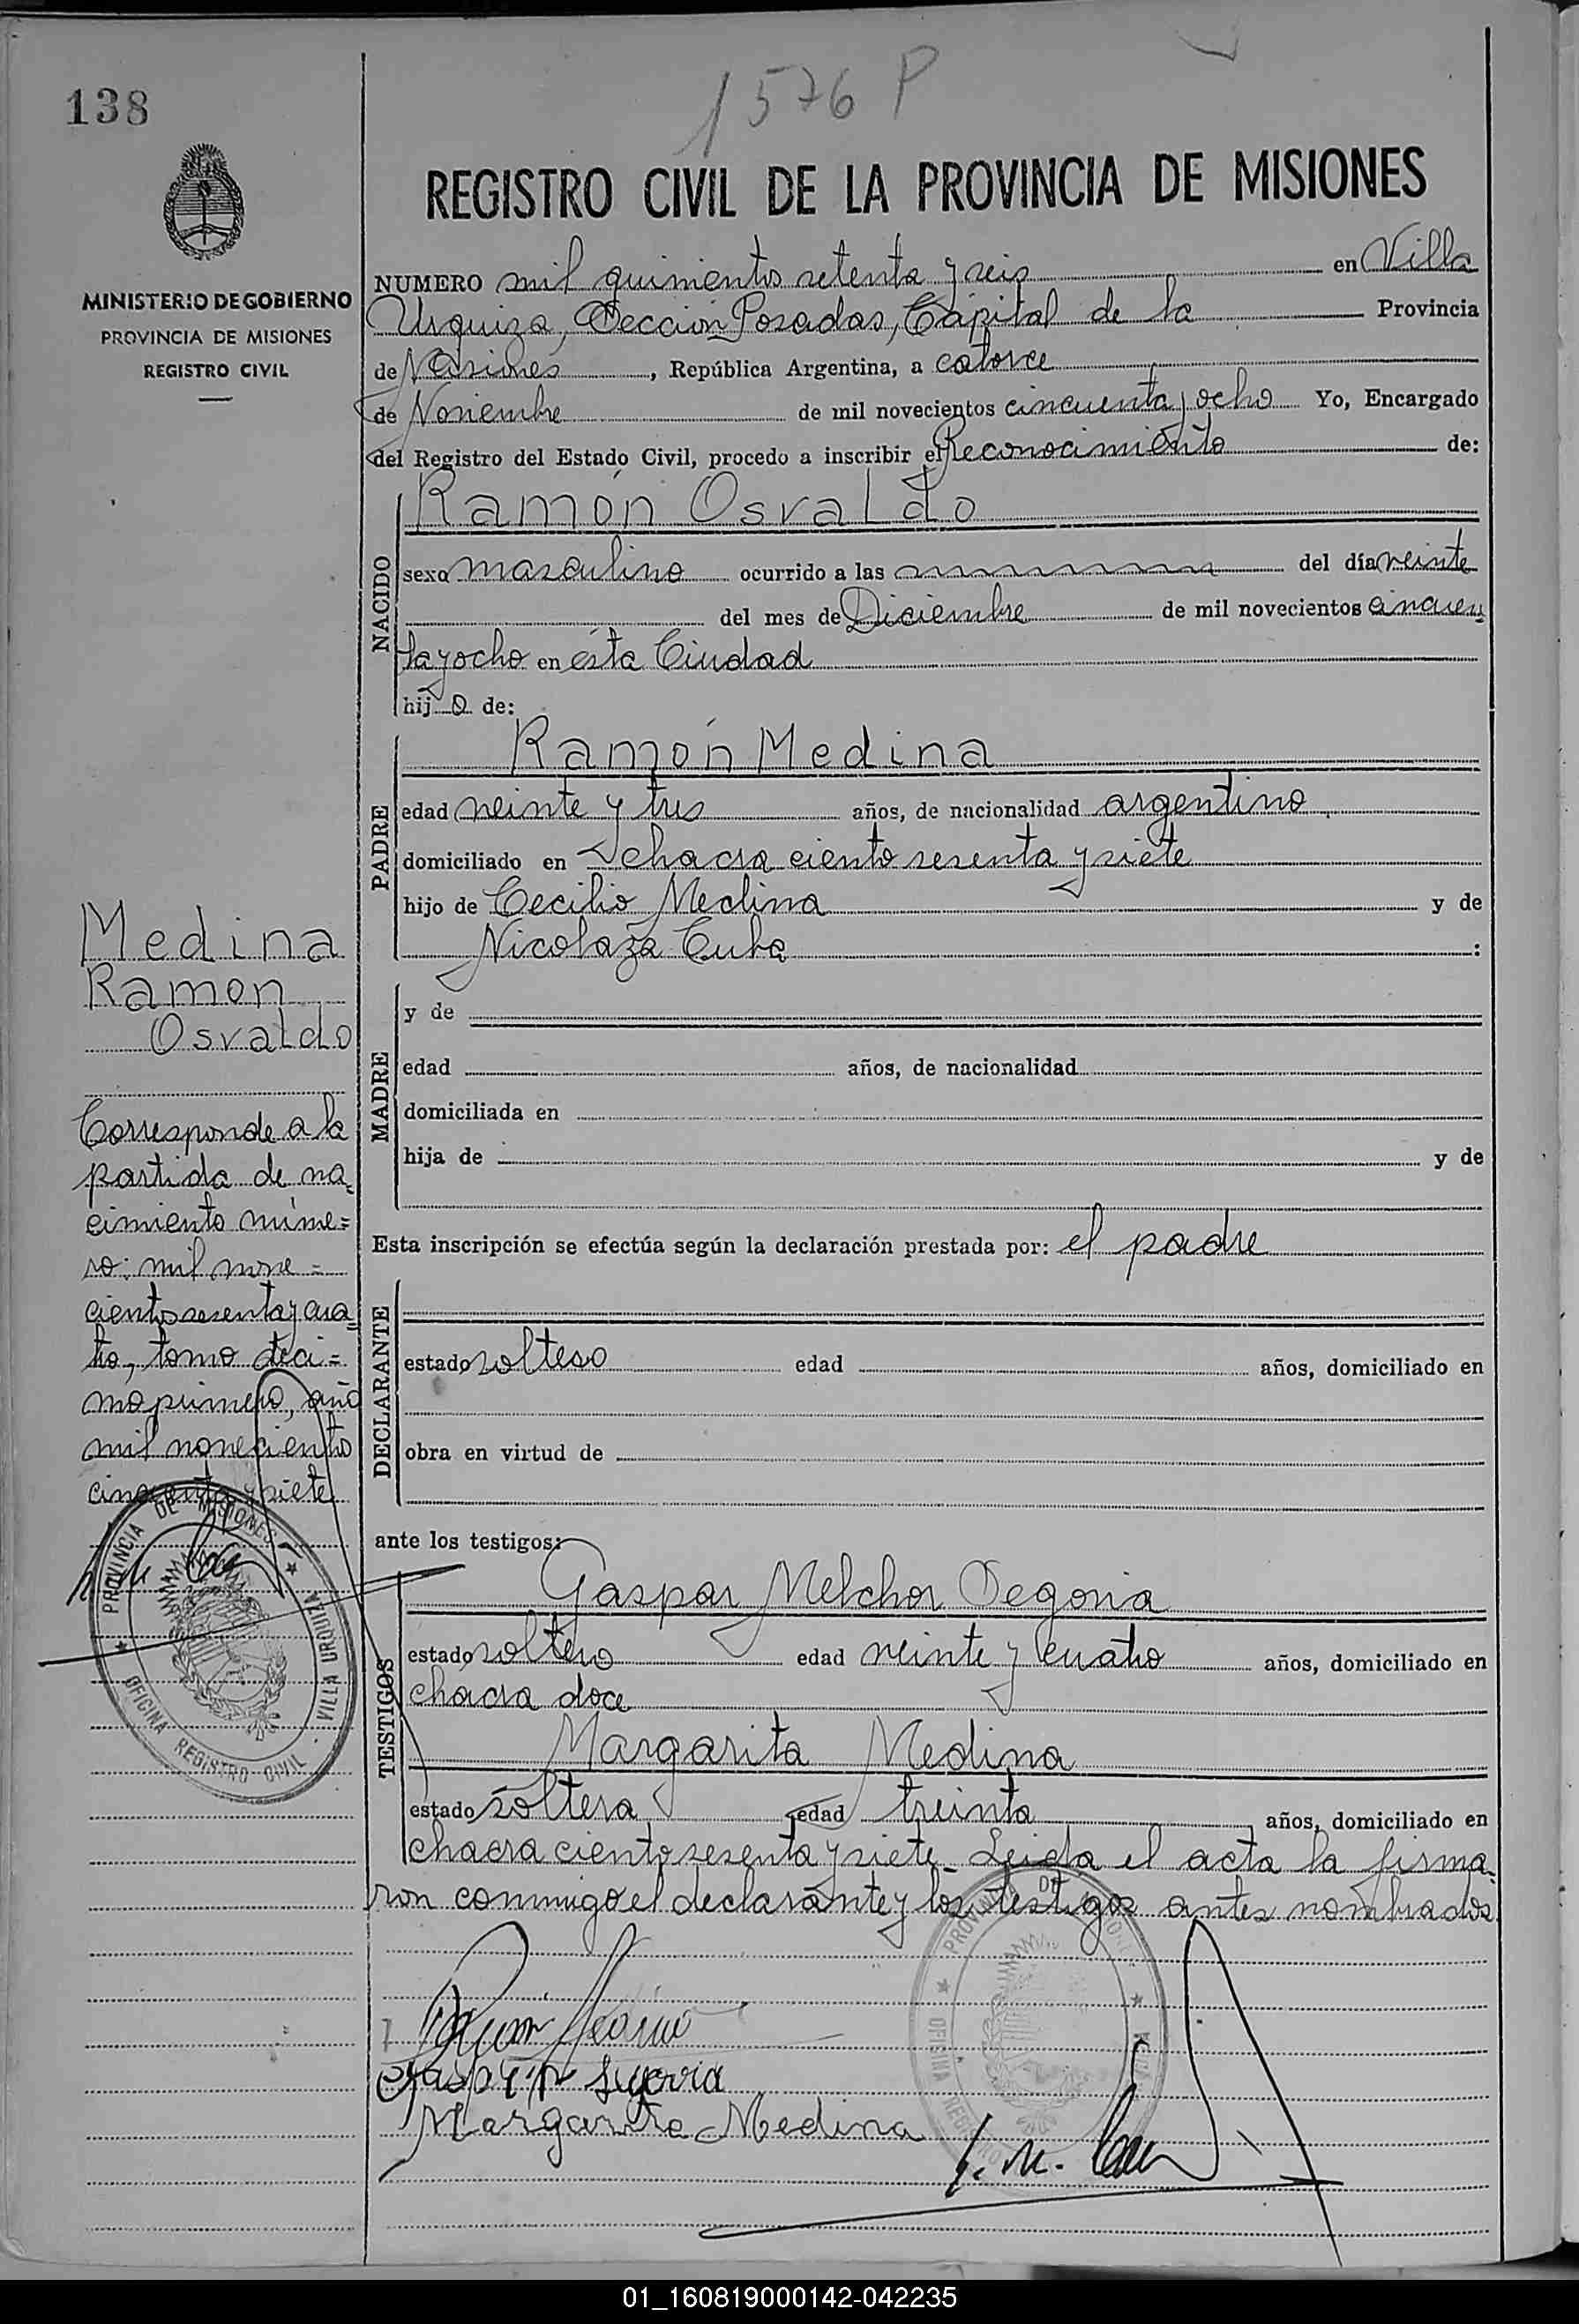 138
1576 P
REGISTRO CIVIL DE LA PROVINCIA DE MISIONES
MINISTERIO DE GOBIERNO
PROVINCIA DE MISIONES
REGISTRO CIVIL
NUMERO mil quinientos setenta y seis en Villa
Urquiza, Sección Posadas, Capital de la Provincia
de Misiones, República Argentina, a catorce
de Noviembre de mil novecientos cincuenta y ocho Yo, Encargado
del Registro del Estado Civil, procedo a inscribir el Reconocimiento de:
NACIDO
Ramón Osvaldo
sexo masculino ocurrido a las del día veinte
del mes de Diciembre de mil novecientos cincuen
ta y ocho en ésta Ciudad
hij o de:
PADRE
Ramón Medina
edad veinte y tres años, de nacionalidad argentino
domiciliado en chacra ciento sesenta y siete
hijo de Cecilio Medina y de
Nicolaza Cuba :
MADRE
y de
edad años, de nacionalidad
domiciliada en
hija de y de
Esta inscripción se efectúa según la declaración prestada por: el padre
DECLARANTE
estado soltero edad años, domiciliado en
obra en virtud de
ante los testigos:
TESTIGOS
Gaspar Melchor Segovia
estado soltero edad veinte y cuatro años, domiciliado en
chacra doce
Margarita Medina
estado soltera edad treinta años, domiciliado en
chacra ciento sesenta y siete - Leida el acta la firma-
ron conmigo el declarante y los testigos antes nombrados
Ramón Medina
Gaspar M Segovia
Margarita Medina
Medina
Ramon
Osvaldo
Corresponde a la
partida de na=
cimiento núme=
ro: mil nove=
ciento sesenta y cua=
tro, tomo déci=
mo primero, año
mil noveciento
cincuenta y siete
PROVINCIA DE MISIONES
VILLA URQUIZA
OFICINA REGISTRO CIVIL
01_160819000142-042235